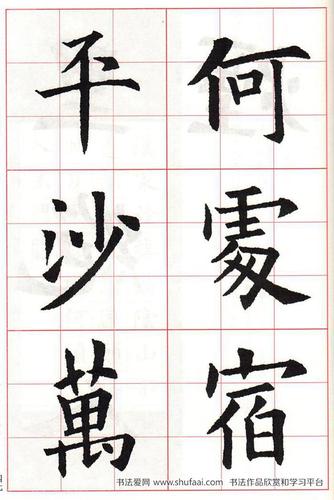 何處宿
平沙萬
书法爱网 www.shufaai.com 书法作品欣赏和学习平台